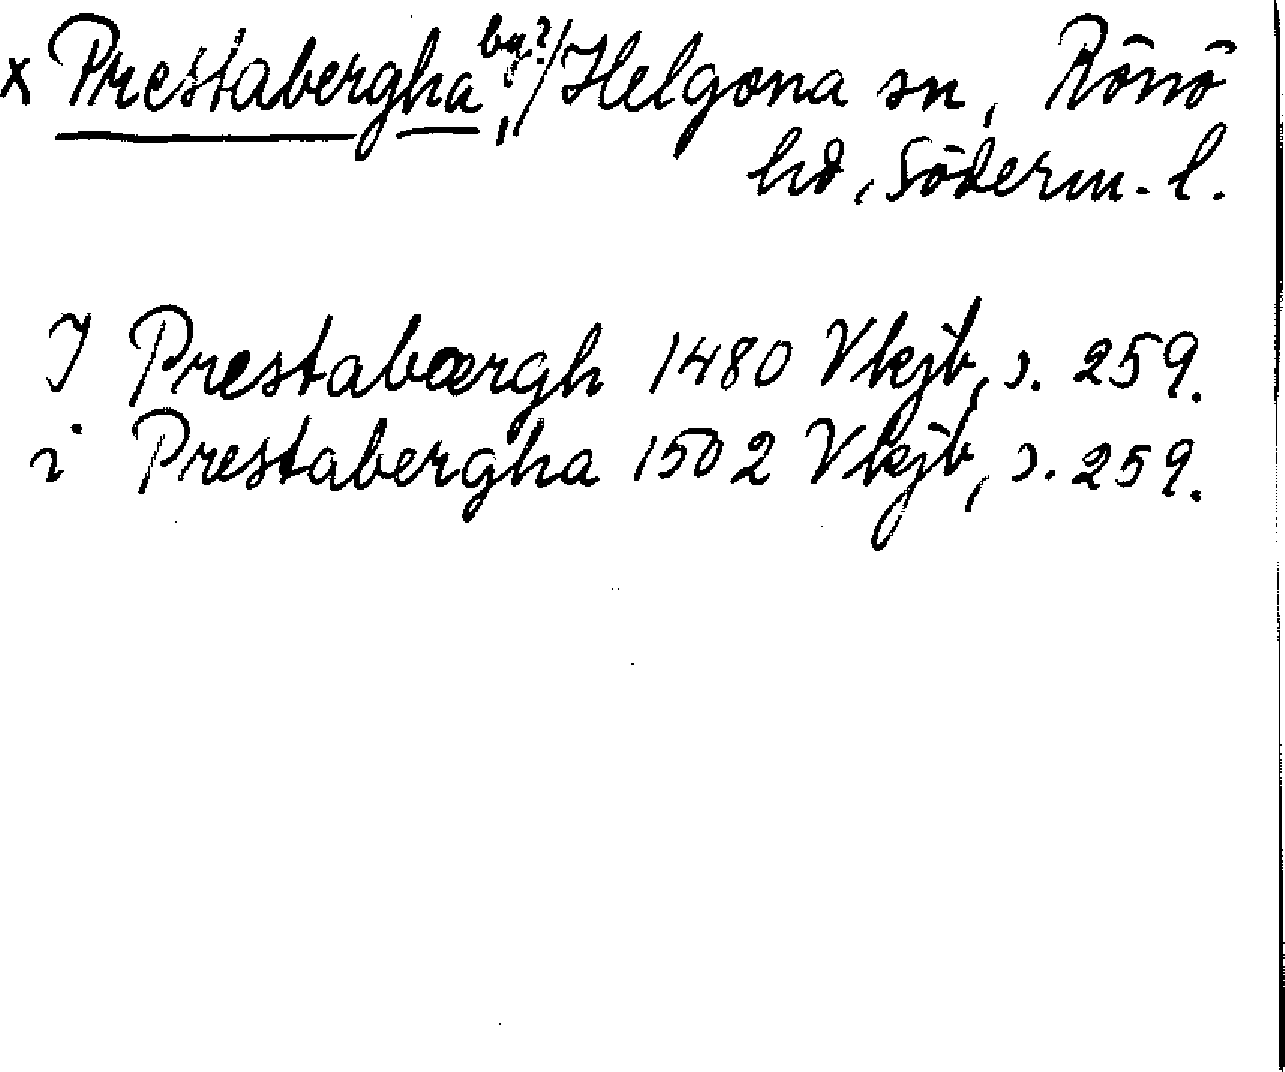 x Prestabergha, by?/ Helgona sn, Rönö
hd, Söderm. l.
I Prestabærgh 1480 Vkjb, s. 259.
i Prestabergha 1502 Vkjb, s. 259.